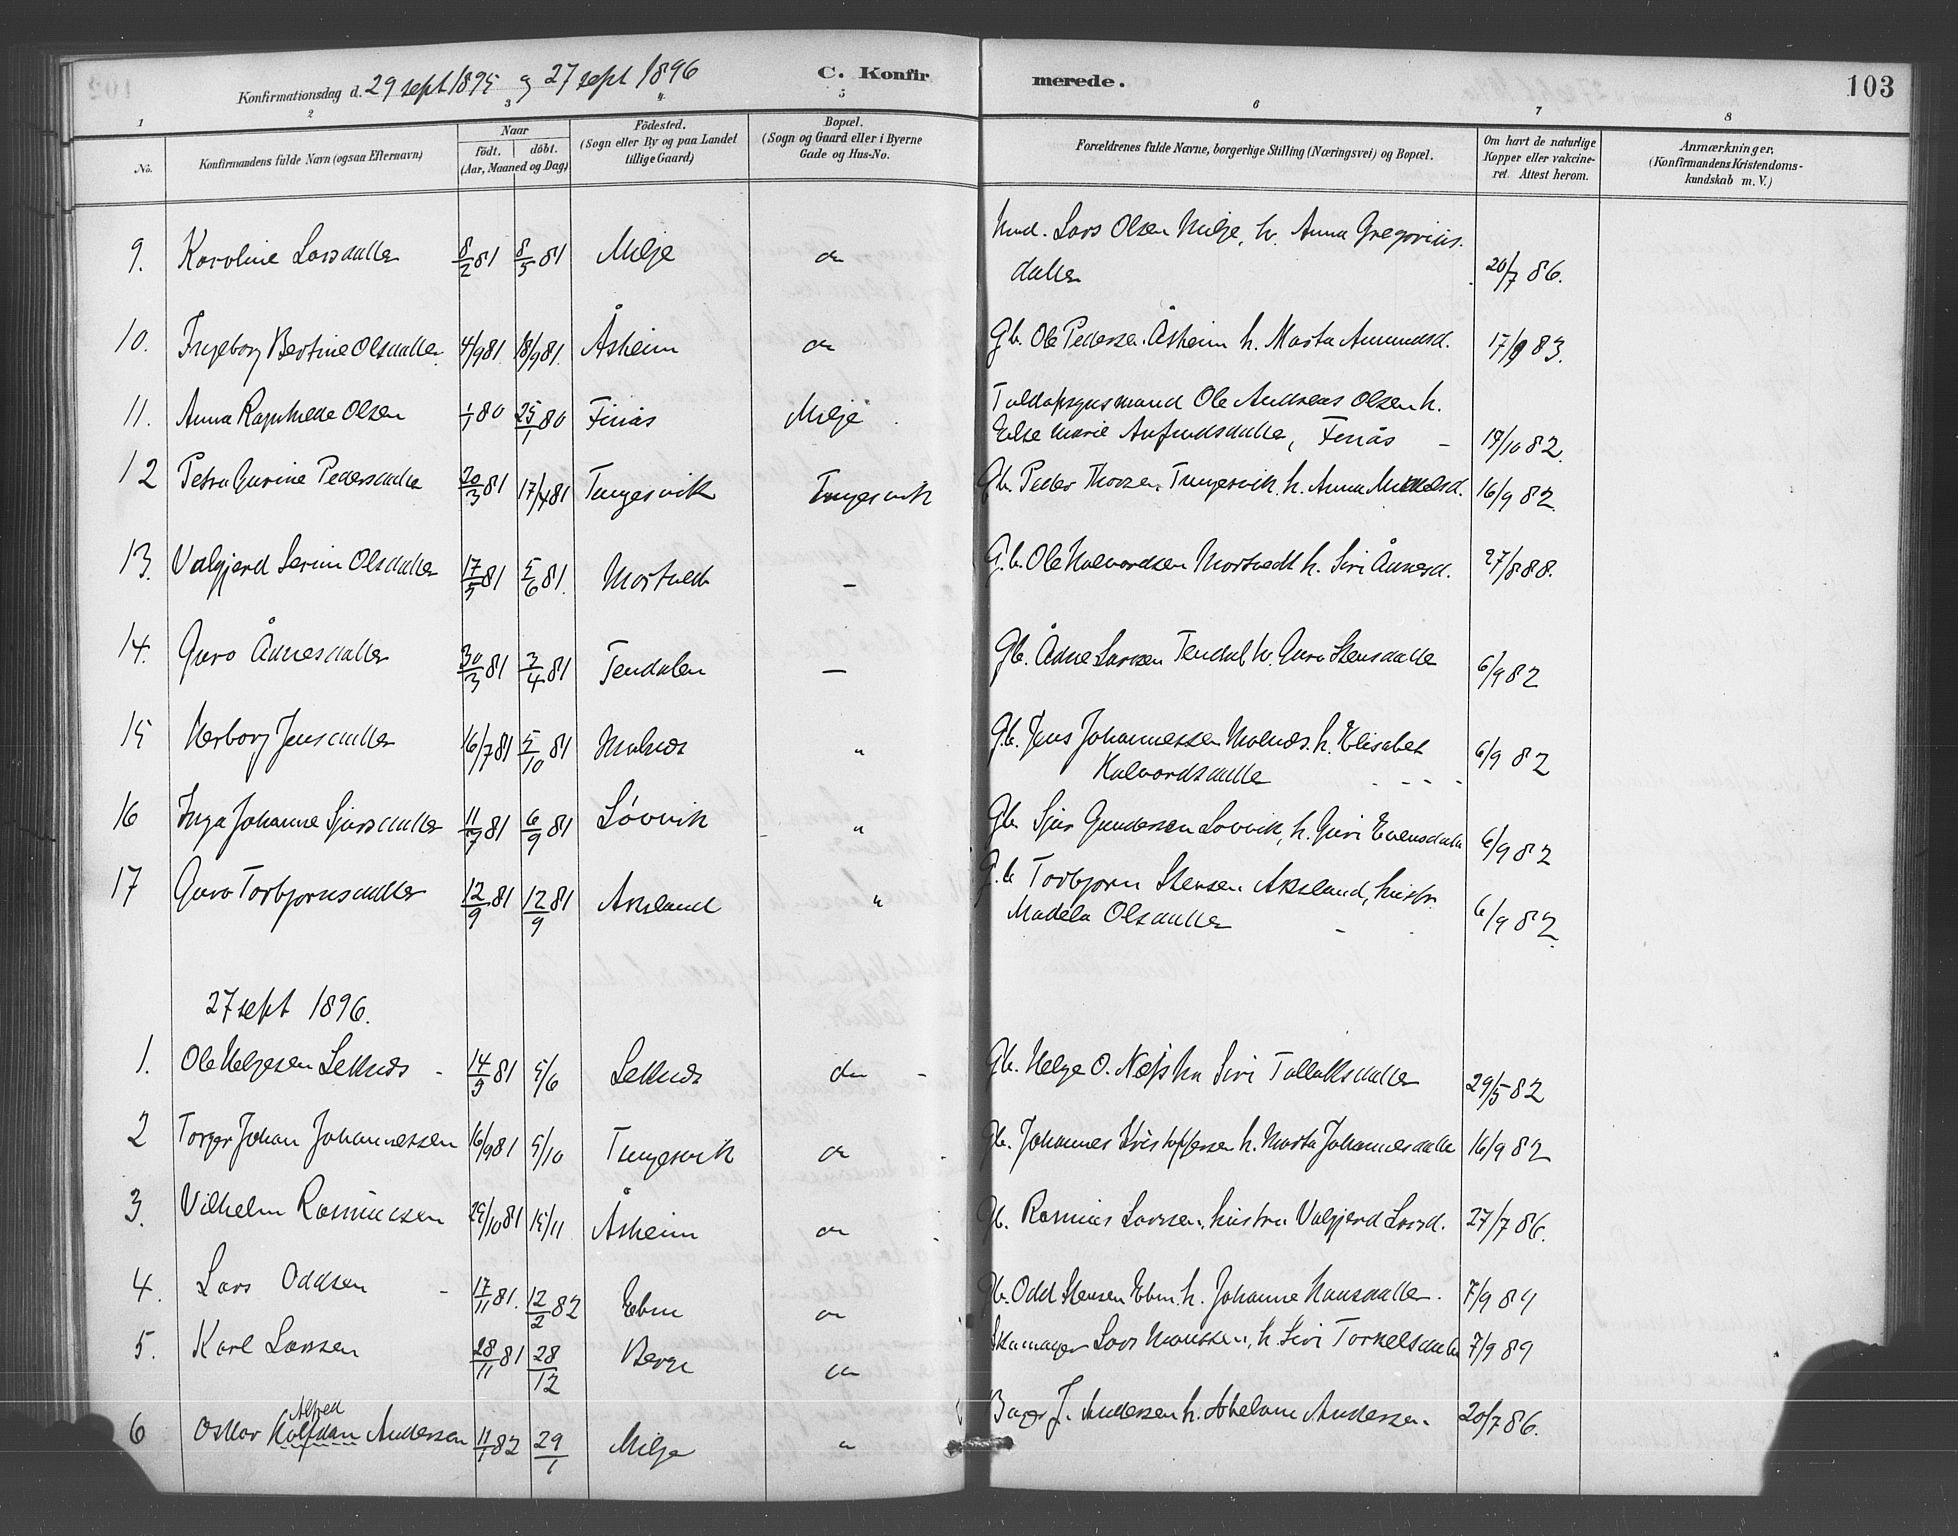 Konfirmationsdag d. 29 sept 1895 og 27 sept 1896 C. Konfirmerede. 103
1 2 3 4 5 6 7 8
No. Konfirmandens fulde Navn (ogsaa Efternavn) Naar födt. döbt. (Aar, Maaned og Dag) Födested. (Sogn eller By og paa Landet tillige Gaard) Bopæl. (Sogn og Gaard eller i Byerne Gade og Hus-No. Forældrenes fulde Navne, borgerlige Stilling (Næringsvei) og Bopæl. Om havt de naturlige Kopper eller vakcineret. Attest herom. Anmærkninger. (Konfirmandens Kristendomskundskab m. V.)
9. Karoline Larsdatter 8/2 81 8/5 81 Milje do Lars Olsen Milje, h. Anna Gregorius-
datter 20/7 86.
10. Ingeborg Bertine Olsdatter 4/9 81. 18/9 81. Åsheim do Gb. Ole Pedersen Åsheim h. Marta Amundsd. 17/9 83.
11. Anna Olsen 1/1 80 25/1 80 Finås Milje Ole Andreas Olsen h.
Else Marie Finås 19/10 82.
12 Petra Gurine Pedersdatter 20/3 81 17/4 81 Tungesvik Tungesvik Gb. Peder Tungesvik h. Anna 16/9 82.
13. Valgjerd Serine Olsdatter 17/5 81 5/6 81. Mortvedt — Gb. Ole Halvordsen Mortvedt h. Siri Ånnesd. 27/8 88.
14. Guro Ådnesdatter 30/3 81 3/4 81 Tendalen — Gb. Ådne Larsen Tendal h. Guro Stensdatter 6/9 82
15 Herborg Jensdatter 16/7 81 5/10 81 Molnes " Gb. Jens Johannessen Molnes. h. Elisabet
Halvordsdatter 6/9 82
16 Inga Johanne Sjursdatter 11/7 81 6/9 81 Løvvik " Gb. Sjur Gundersen Lovvik, h. Guri Evensdatter 6/9 82
17 Guro Torbjornsdatter 12/9 81 12/9 81 Aksland " Gb. Torbjorn Stensen Aksland, hustr.
Madela Olsdatter 6/9 82.
27 sept 1896.
1. Ole Helgesen Leknes 14/5 81 5/6 Leknes do Gb. Helge O. Siri Tollaksdatter 29/5 82
2 Torger Johan Johannessen 16/9 81 5/10 Tungesvik do Gb. Johannes Kristoffersen h. Marta Johannesdatter 16/9 82
3. Vilhelm Rasmussen 25/10 81 15/11 Åsheim do Gb. Rasmus Larssen, hustru Valgjerd Larsd. 27/7 86.
4. Lars Oddsen 17/11 81. 12/2 82 Ebne do Gb. Odd Stensen Ebne. h. Johanne Hansdatter. 7/9 89
5. Karl Larsen 28/11 81 28/12 Berge do Skomager Lars Monssen, h. Siri Torkelsdatter 7/9 89
Alfred
6 Oskar Halfdan Andersen 11/1 82 29/1 Milje " Bager J. Andersen h. Andersen. 20/7 86.